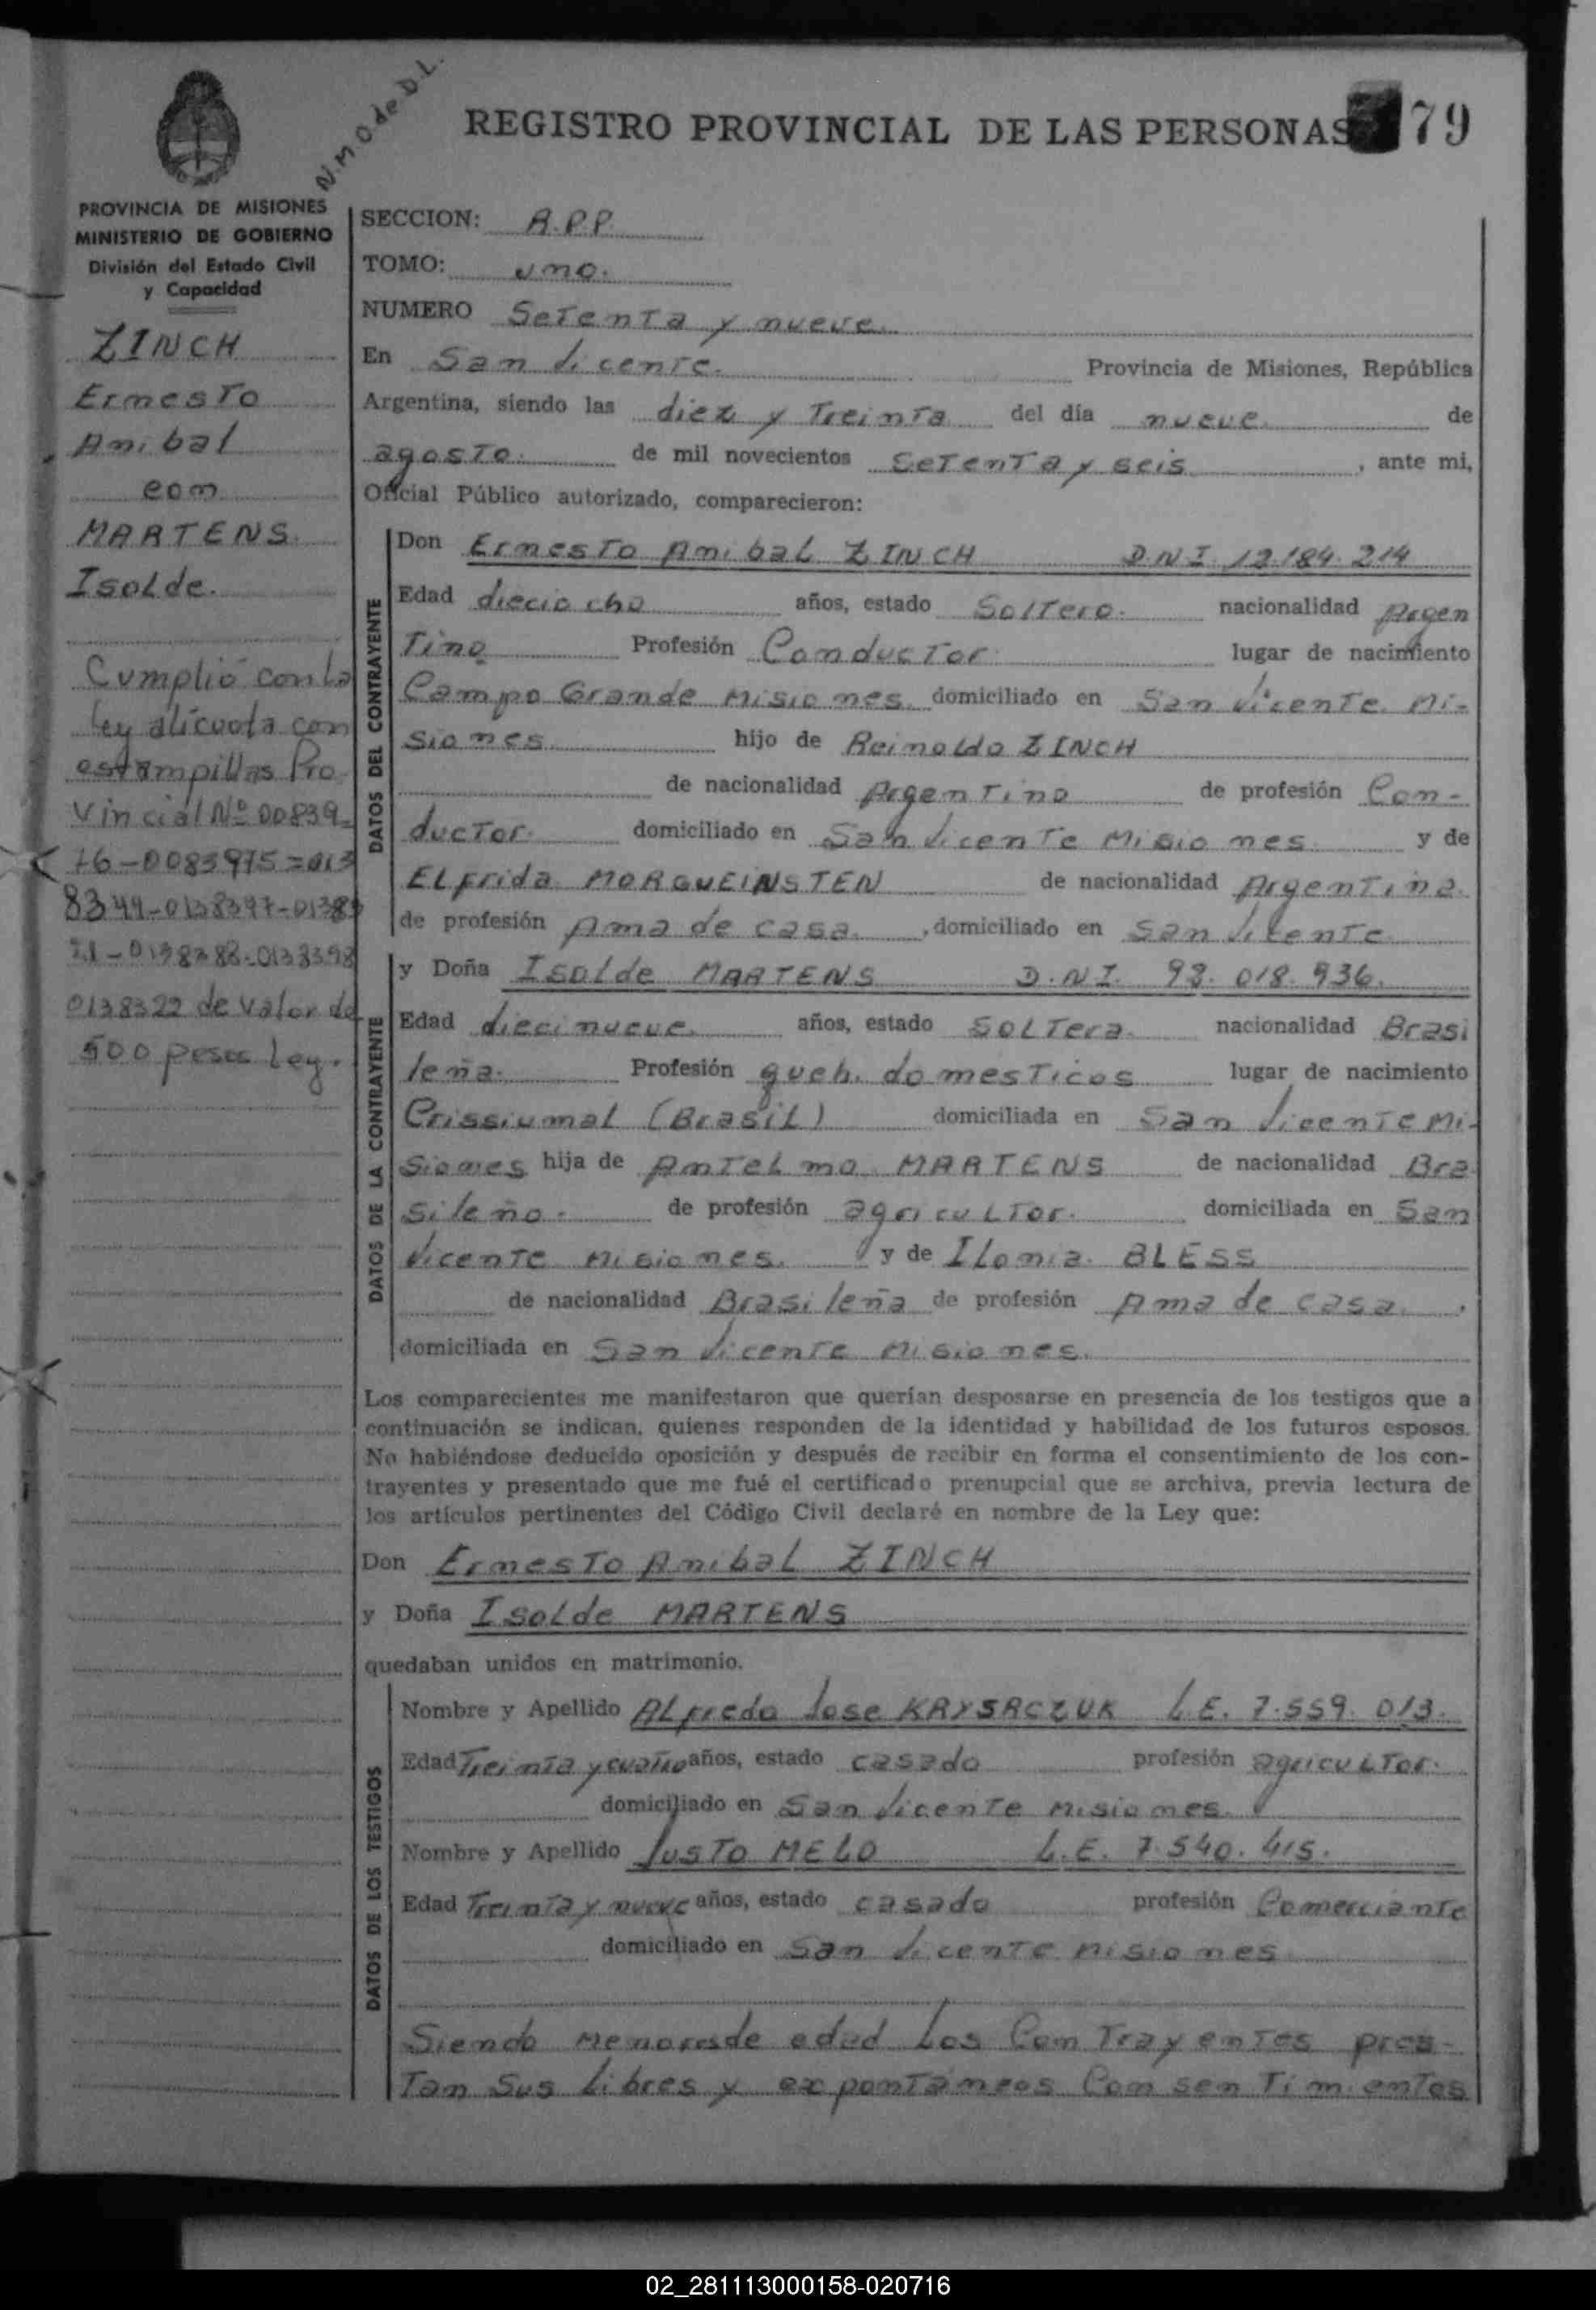 N.M.O. de D.L.
REGISTRO PROVINCIAL DE LAS PERSONAS
79
PROVINCIA DE MISIONES
MINISTERIO DE GOBIERNO
División del Estado Civil
y Capacidad
ZINCH
Ernesto
Anibal
con
MARTENS.
Isolde.
Cumplió con la
Ley alícuota con
estampillas Pro
vincial Nº 00839
76-0083975=013
8344-0138397-01383
0138322 de valor de
500 pesos Ley.
SECCION: A.P.P.
TOMO: uno.
NUMERO Setenta y nueve.
En San Vicente. Provincia de Misiones, República
Argentina, siendo las diez y Treinta del día nueve. de
agosto. de mil novecientos setenta y seis, ante mi,
Oficial Público autorizado, comparecieron:
DATOS DEL CONTRAYENTE
Don Ernesto Anibal ZINCH D.N.I. 12.184.214
Edad dieciocho años, estado Soltero. nacionalidad Argen
Tino Profesión Conductor. lugar de nacimiento
Campo Grande Misiones. domiciliado en San Vicente. Mi-
siones. hijo de Reinoldo ZINCH
de nacionalidad Argentino de profesión Con-
ductor. domiciliado en San Vicente Misiones. y de
Elfrida MORGUEINSTEN de nacionalidad Argentina.
de profesión Ama de casa., domiciliado en San Vicente.
DATOS DE LA CONTRAYENTE
y Doña Isolde MARTENS D.N.I. 93.018.936.
Edad diecinueve. años, estado Soltera. nacionalidad Brasi
leña. Profesión queh. domesticos lugar de nacimiento
Crissiumal (Brasil) domiciliada en San Vicente Mi-
siones hija de Antelmo MARTENS de nacionalidad Bra
sileño. de profesión agricultor. domiciliada en San
Vicente Misiones. y de Ilonia. BLESS
de nacionalidad Brasileña de profesión Ama de casa.,
domiciliada en San Vicente Misiones.
Los comparecientes me manifestaron que querían desposarse en presencia de los testigos que a
continuación se indican, quienes responden de la identidad y habilidad de los futuros esposos.
No habiéndose deducido oposición y después de recibir en forma el consentimiento de los con-
trayentes y presentado que me fué el certificado prenupcial que se archiva, previa lectura de
los artículos pertinentes del Código Civil declaré en nombre de la Ley que:
Don Ernesto Anibal ZINCH
y Doña Isolde MARTENS
quedaban unidos en matrimonio.
DATOS DE LOS TESTIGOS
Nombre y Apellido Alfredo Jose KRYSACZUK L.E. 7.559.013.
Edad Treinta y cuatro años, estado casado profesión agricultor.
domiciliado en San Vicente Misiones.
Nombre y Apellido Justo MELO L.E. 7.540.415.
Edad Treinta y nueve años, estado casado profesión Comerciante
domiciliado en San Vicente Misiones
Siendo menores de edad Los Contrayentes pres-
Tan sus Libres y expontáneos Consentimientos
02_281113000158-020716